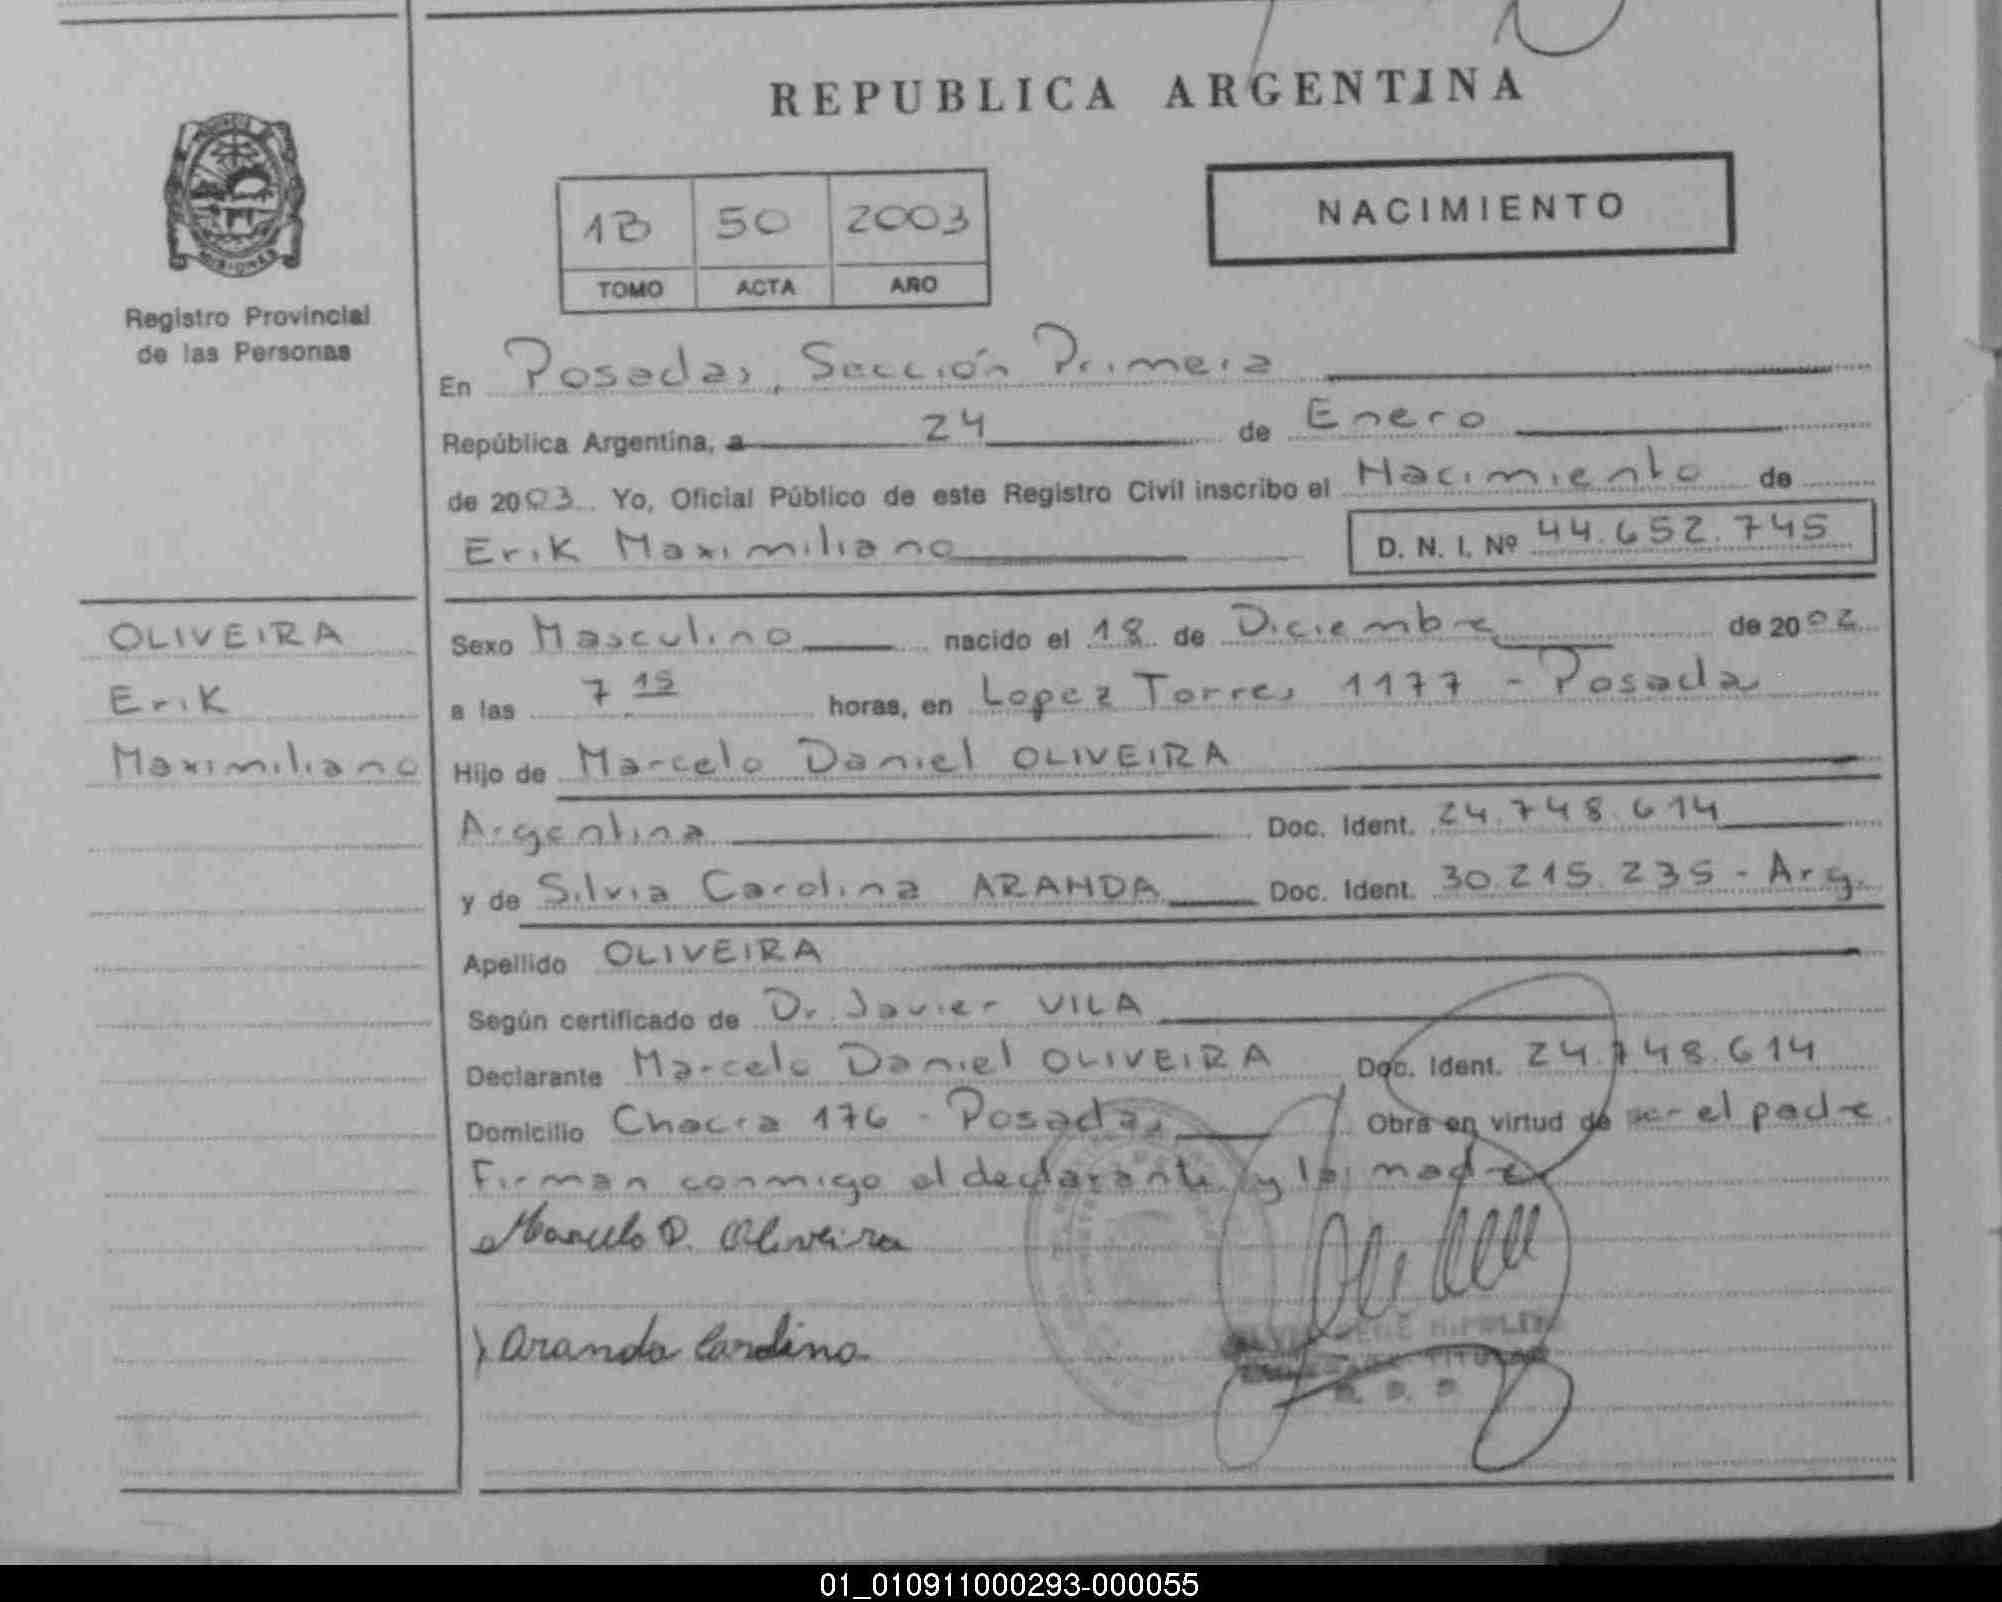 REPUBLICA ARGENTINA
NACIMIENTO
1B 50 2003
TOMO ACTA AÑO
Registro Provincial
de las Personas
En Posadas, Sección Primera
República Argentina, a 24 de Enero
de 2003 Yo, Oficial Público de este Registro Civil inscribo el Nacimiento de
Erik Maximiliano D. N. I. Nº 44.652.745
OLIVEIRA
Erik
Maximiliano
Sexo Masculino nacido el 18 de Diciembre de 2002
a las 7 15 horas, en Lopez Torres 1177 - Posadas
Hijo de Marcelo Daniel OLIVEIRA
Argentina Doc. Ident. 24.748.614
y de Silvia Carolina ARANDA Doc. Ident. 30.215.235 - Arg.
Apellido OLIVEIRA
Según certificado de Dr. Javier VILA
Declarante Marcelo Daniel OLIVEIRA Doc. Ident. 24.748.614
Domicilio Chacra 176 - Posadas Obra en virtud de ser el padre.
Firman conmigo el declarante y la madre
Marcelo D. Oliveira
Aranda Carolina
01_010911000293-000055